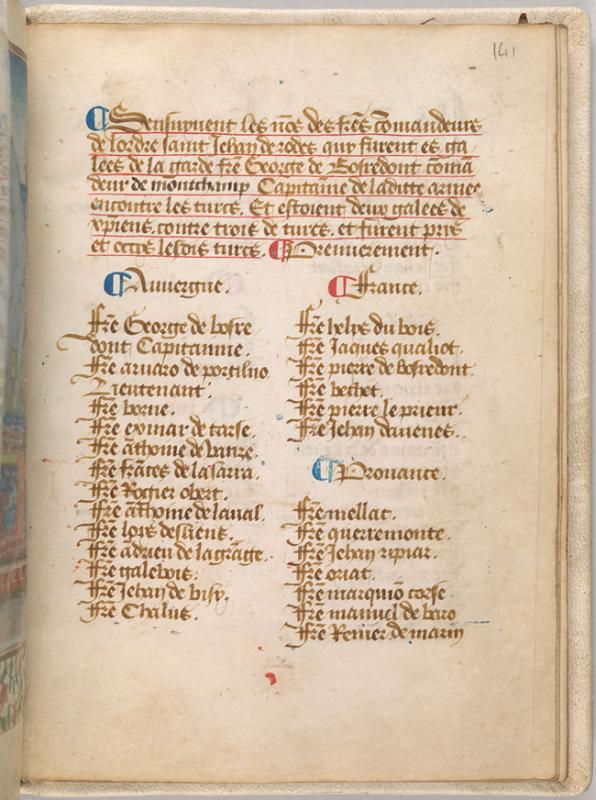 141
Sensuyuent les nōs des frēs cōmandeurs
de lordre saint Jehan de rodes qui furent es ga
lees de la garde frē George de Bosredont cōmā
deur de montchamp Capitaine de laditte armee
encontre les turcs. Et estoient deux galees de
xp̄iens contre trois de turcs. et furent pris
et occys lesdis turcs. Premierement.
Auuergne.
frē George de bosre
dont Capitaine.
frē aruaro de portiluo
Lieutenant.
frē borne.
frē eymar de tarse.
frē āthoine de vauze.
frē frāces de lasarra.
frē Rogier obert.
frē āthoine de laual.
frē loys deschens.
frē adrieu de lagrāge.
frē galebois.
frē Jehan de bisy.
frē Chalus.
France.
frē helys du bois.
frē Jaques qualiot.
frē pierre de bosredont.
frē bechet.
frē pierre le prieur.
frē Jehan dauenes.
Prouance.
frē mellac.
frē querremonte.
frē Jehan ripiar.
frē oriat.
frē marquiō corse.
frē manuel de baro
frē Renier de marin